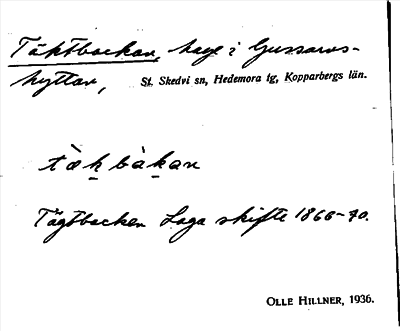 Täktbackan, hage i Gussarvs-
hyttan, St. Skedvi sn, Hedemora tg, Kopparbergs län.
tæ̀k bàkan
Tägtbacken Laga skifte 1866-70.
OLLE HILLNER, 1936.